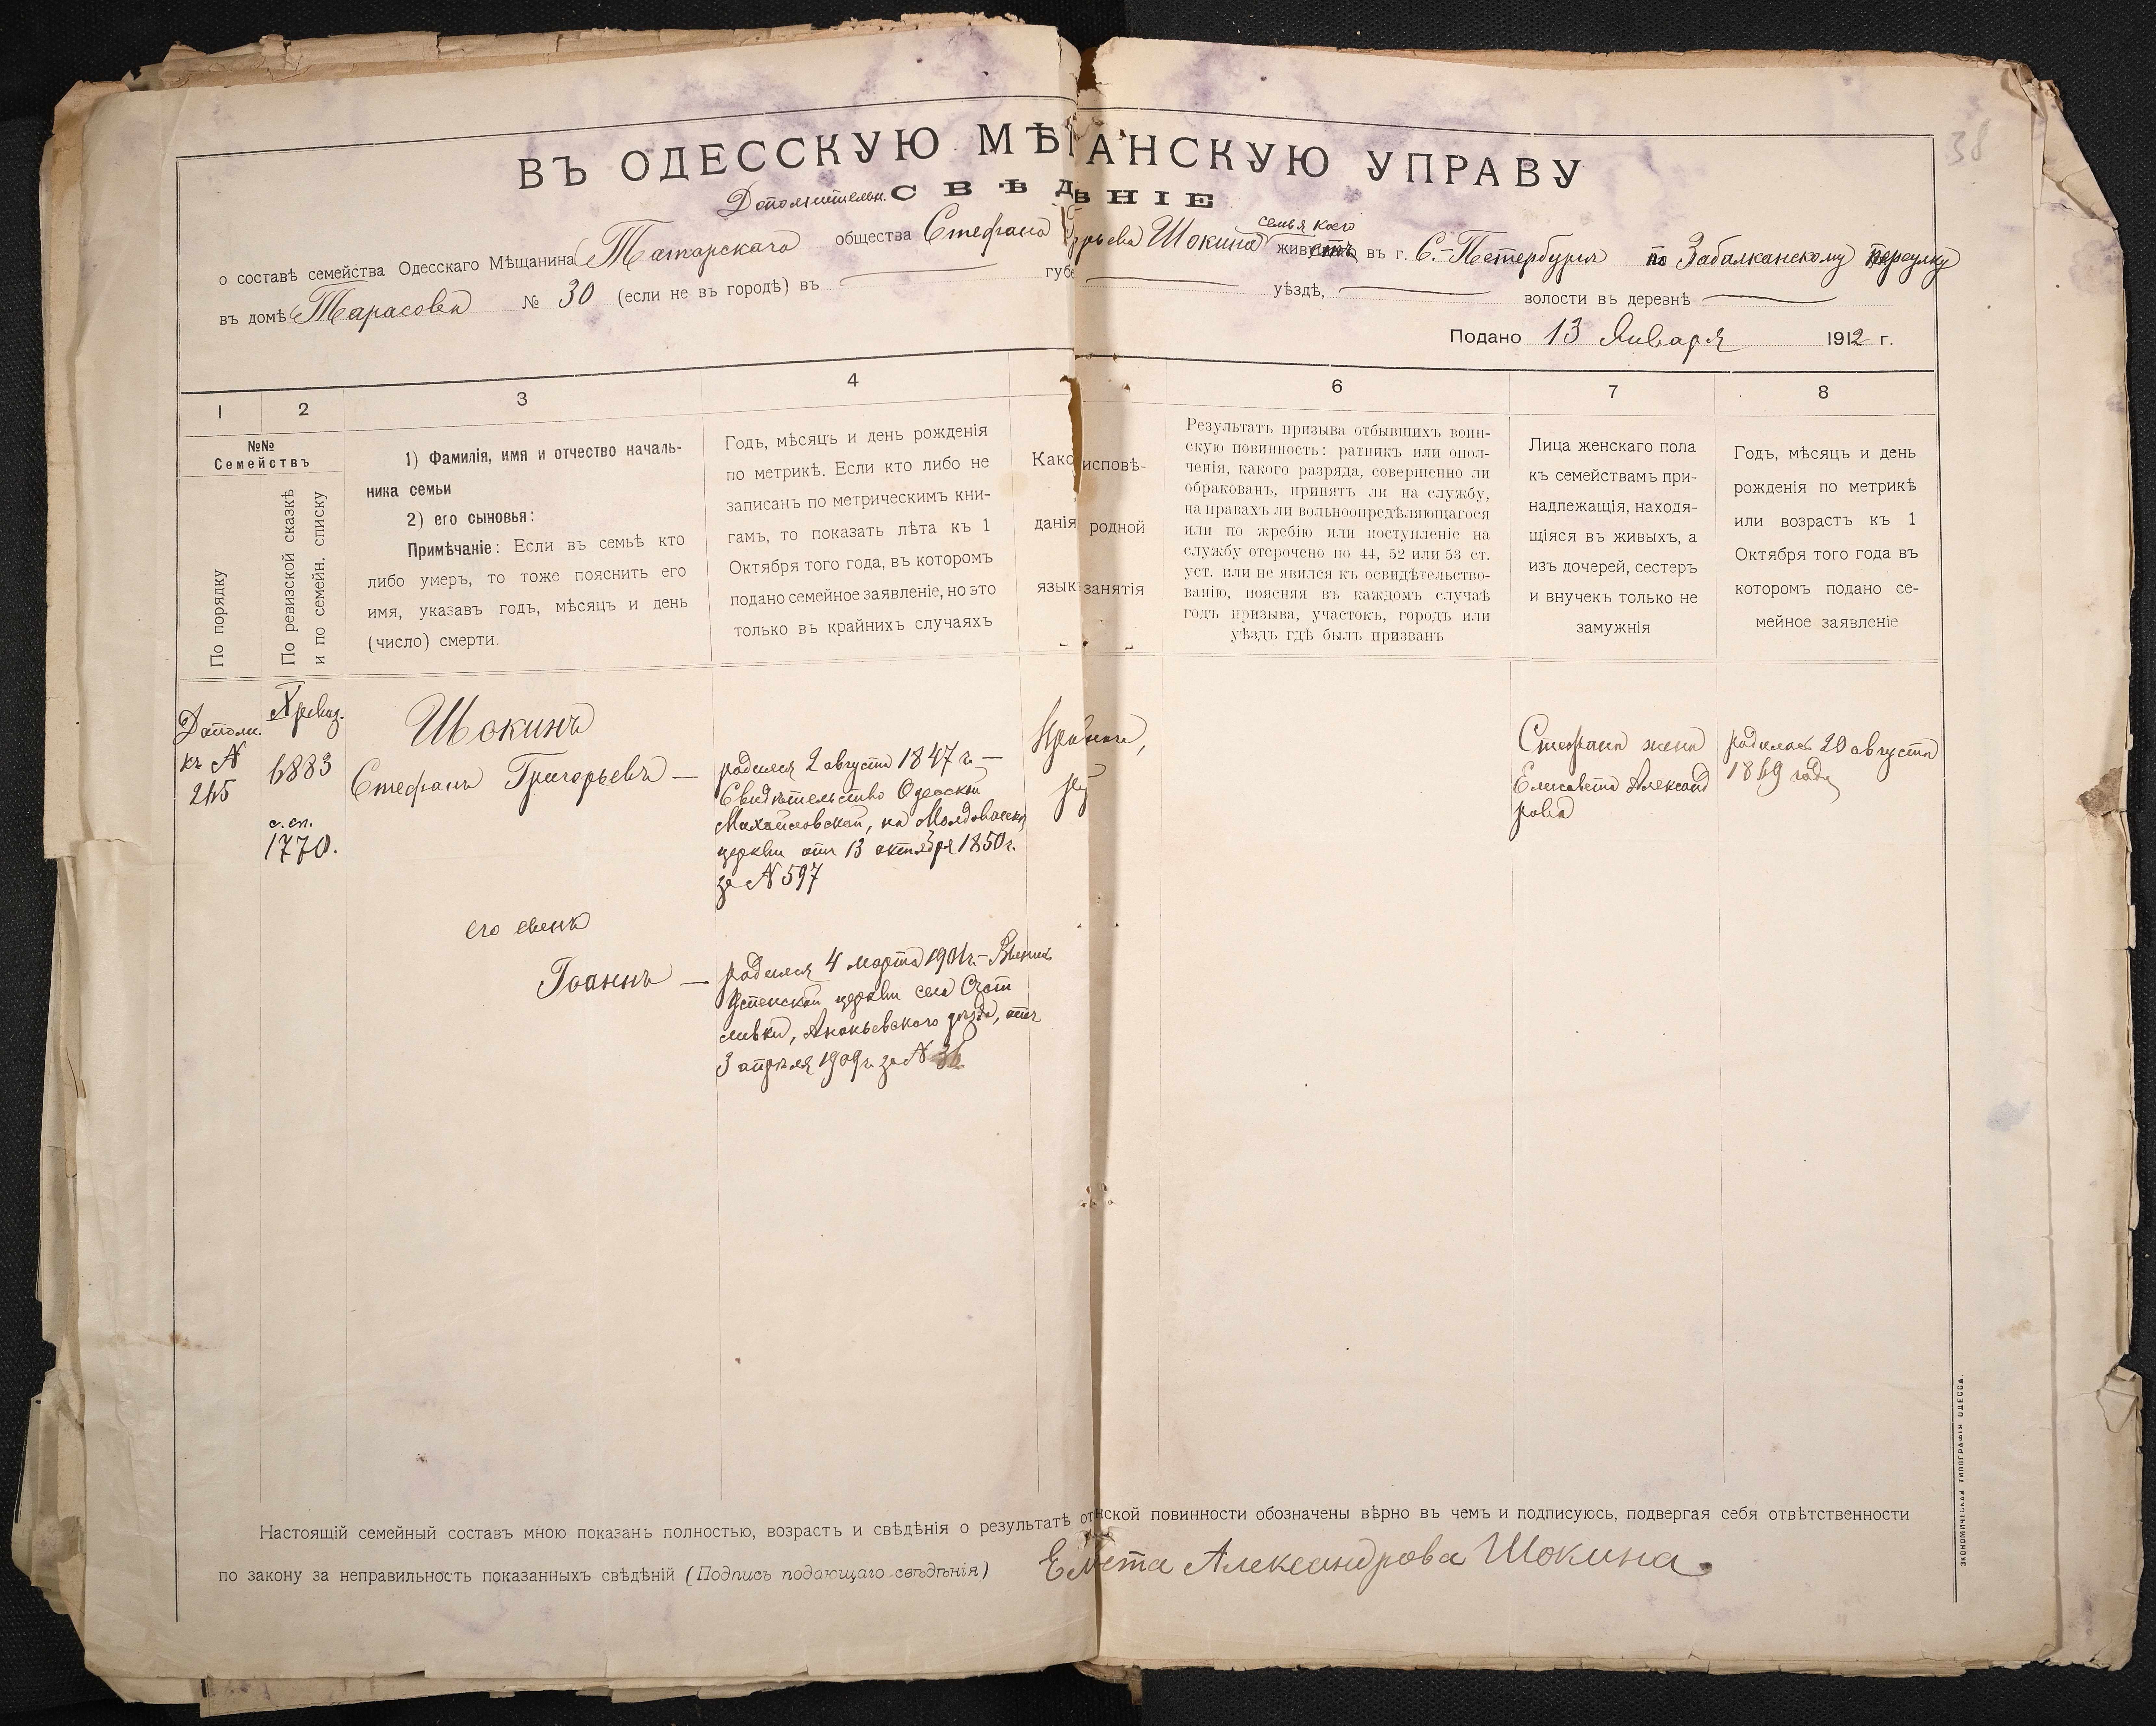 38
ВЪ ОДЕССКУЮ МѢ АНСКУЮ УПРАВУ
Дополнительн. СВѢД ѢНІЕ
семья коего
о составѣ семейства Одесскаго Мѣщанина Татарскаго общества Стефана рьева Шокина живутъ въ г. С.-Петербургѣ по Забалканскому переулку
въ домѣ Тарасова № 30 (если не въ городѣ) въ губе уѣздѣ, волости въ деревнѣ
Подано 13 Января 1912 г.
1 2 3 4 6 7 8
№№
Семействъ
По порядку
По ревизской сказкѣ
и по семейн. списку
1) Фамилія, имя и отчество началь-
ника семьи
2) его сыновья:
Примѣчаніе: Если въ семьѣ кто
либо умеръ, то тоже пояснить его
имя, указавъ годъ, мѣсяцъ и день
(число) смерти.
Годъ, мѣсяцъ и день рожденія
по метрикѣ. Если кто либо не
записанъ по метрическимъ кни-
гамъ, то показать лѣта къ 1
Октября того года, въ которомъ
подано семейное заявленіе, но это
только въ крайнихъ случаяхъ
Како исповѣ-
данія родной
язык занятія
Результатъ призыва отбывшихъ воин-
скую повинность: ратникъ или опол-
ченія, какого разряда, совершенно ли
обракованъ, принятъ ли на службу,
на правахъ ли вольноопредѣляющагося
или по жребію или поступленіе на
службу отсрочено по 44, 52 или 53 ст.
уст. или не явился къ освидѣтельство-
ванію, поясняя въ каждомъ случаѣ
годъ призыва, участокъ, городъ или
уѣздъ гдѣ былъ призванъ
Лица женскаго пола
къ семействамъ при-
надлежащія, находя-
щіяся въ живыхъ, а
изъ дочерей, сестеръ
и внучекъ только не
замужнія
Годъ, мѣсяцъ и день
рожденія по метрикѣ
или возрастъ къ 1
Октября того года въ
которомъ подано се-
мейное заявленіе
Дополн.
къ №
245
X ревиз.
6883
с. сп.
1770.
Шокинъ
Стефанъ Григорьевъ —
родился 2 августа 1847 г. —
Свидѣтельство Одесской
Михайловской, на Молдаванкѣ,
церкви отъ 13 октября 1850 г.
за № 597
его сынъ
Іоаннъ —
родился 4 марта 1901 г. —
Успенской церкви села Счаст
ливки, Ананьевского уѣзда, отъ
3 апрѣля 1909 г. за №
Стефана жена
Елисавета Александ
рова
родилась 20 августа
1869 года
Настоящій семейный составъ мною показанъ полностью, возрастъ и свѣдѣнія о результатѣ от нской повинности обозначены вѣрно въ чемъ и подписуюсь, подвергая себя отвѣтственности
по закону за неправильность показанныхъ свѣдѣній (Подпись подающаго свѣдѣнія) Ел ета Александрова Шокина.
ЭКОНОМИЧЕСКАЯ ТИПОГРАФІЯ ОДЕССА.